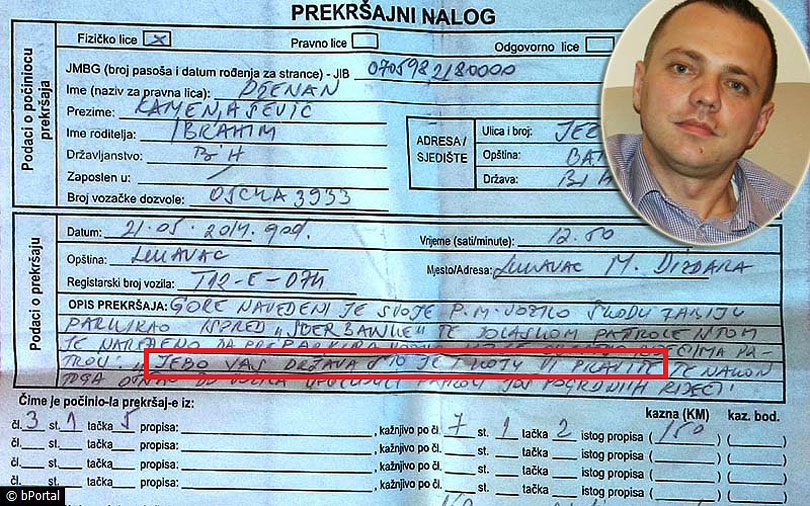 PREKRŠAJNI NALOG
Podaci o počiniocu prekršaja
Fizičko lice X Pravno lice Odgovorno lice
JMBG (broj pasoša i datum rođenja za strance) - JIB
Ime (naziv za pravna lica): DŽENAN
Prezime: KAMENJAŠEVIĆ
Ime roditelja: IBRAHIM
Državljanstvo: BiH
Zaposlen u: /
Broj vozačke dozvole: 3933
ADRESA / SJEDIŠTE
Ulica i broj:
Opština:
Država: BI
Podaci o prekršaju
Datum: 21.05.2014. god. Vrijeme (sati/minute): 12.50
Opština: LUKAVAC Mjesto/Adresa: LUKAVAC M. DIZDARA
Registarski broj vozila: T12-E-074
OPIS PREKRŠAJA: GORE NAVEDENI JE SVOJE P.M. VOZILO ŠKODU FABIJU
PARKIRAO ISPRED „SBERBANKE“ TE DOLASKOM PATROLE ISTOM
JE NAREĐENO DA PREPARKIRA
TROLI: „JEBO VAS DRŽAVA ŠTO JE I KOJU VI PRAVITE TE NAKON
TOGA PATROLI JOŠ POGRDNIH RIJEČI!
Čime je počinio-la prekršaj-e iz: kazna (KM) kaz. bod.
čl. 3 st. 1 tačka 5 propisa: , kažnjivo po čl. 7 st. 1 tačka 2 istog propisa ( 150 ) ( )
čl. st. tačka propisa: , kažnjivo po čl. st. tačka istog propisa ( ) ( )
čl. st. tačka propisa: , kažnjivo po čl. st. tačka istog propisa ( ) ( )
čl. st. tačka propisa: , kažnjivo po čl. st. tačka istog propisa ( ) ( )
© bPortal